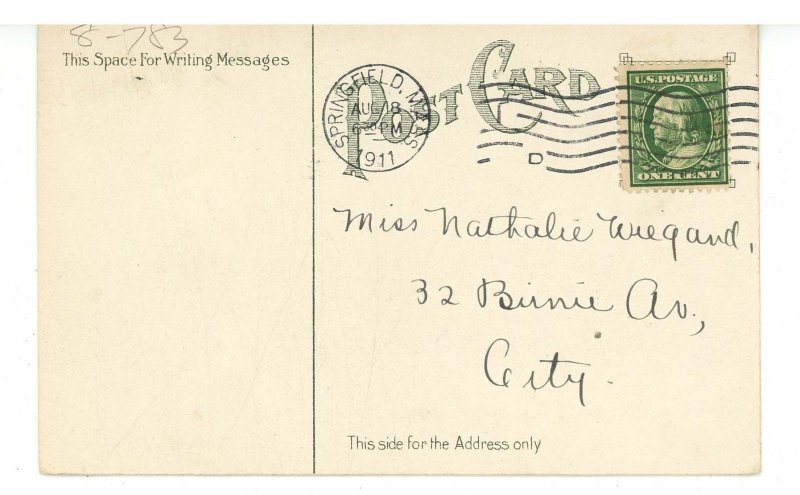 8-783
This Space For Writing Messages
POST CARD
SPRINGFIELD, MASS
AUG 18
6 30 PM
1911
D
U.S. POSTAGE
ONE CENT
Miss Nathalie Wiegand,
32 Birnie Av.,
City.
This side for the Address only